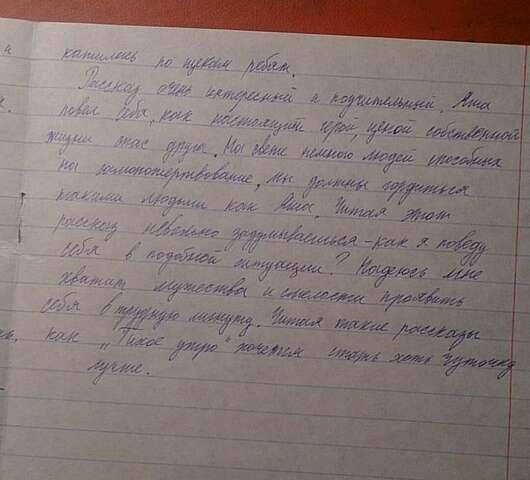 и
катилось по щекам ребят.
Рассказ очень интересный и поучительный. Яша
повел себя, как настоящий герой, ценой собственной
жизни спас друга. На свете немного людей способных
на самопожертвование, мы должны гордиться
такими людьми как Яша. Читая этот
рассказ невольно задумываешься - как я поведу
себя в подобной ситуации? Надеюсь мне
хватит мужества и смелости проявить
себя в трудную минуту. Читая такие рассказы
как „Тихое утро“ хочется стать хоть чуточку
лучше.